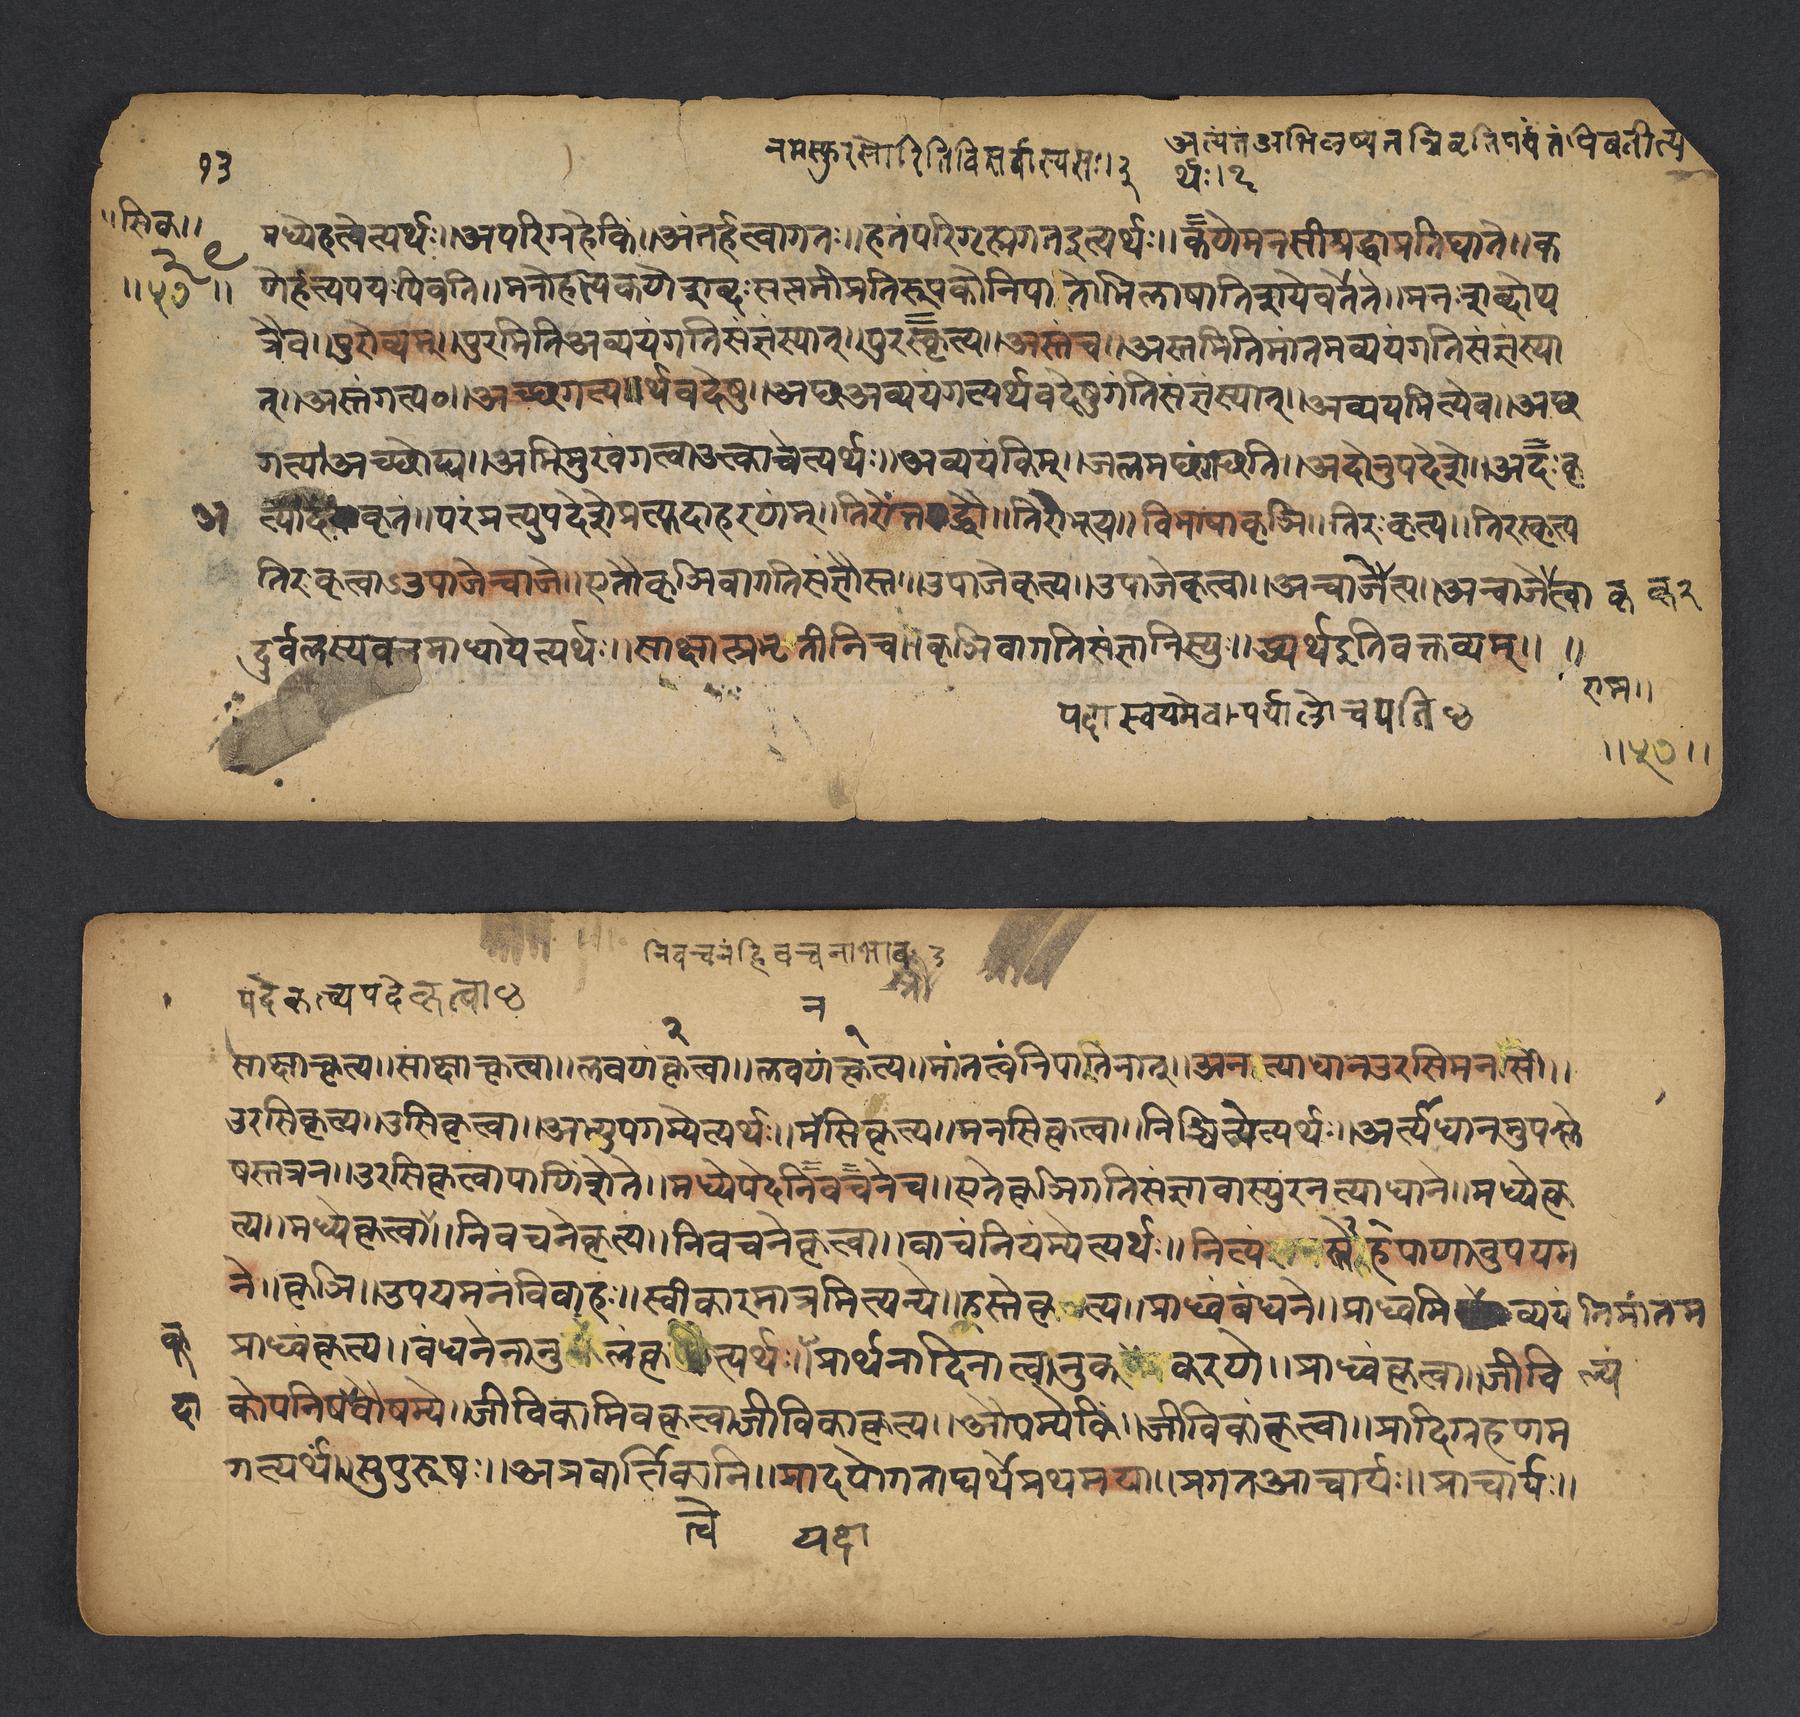 १३
नमस्पुरसोरितिविसर्गस्यसः।३
अत्यंतंअभिलष्यतन्निवृत्तिपर्यंतंपिबतीत्य
र्थः।१
॥सिक॥
॥५७॥
मध्येहत्वेत्यर्थः॥अपरिग्रहेकिं॥अंतर्हत्वागतः॥हतंपरिगृह्यगतइत्यर्थः॥कणेमनसीश्रद्धाप्रतिघाते॥क
णेहत्यपयःपिबति॥मनोहत्यकणेशब्दःसप्तमीप्रतिरूपकोनिपातोभिलाषातिशयेवर्तते॥मनःशब्दोप्य
त्रैव॥पुरोव्यम्॥पुरमितिअव्ययंगतिसंज्ञंस्यात्॥पुरस्कृत्य॥अस्तंच॥अस्तमितिमांतमव्ययंगतिसंज्ञंस्या
त्॥अस्तंगत्य०॥अच्छगत्यर्थवदेषु॥अच्छअव्ययंगत्यर्थवदेषुगतिसंज्ञंस्यात्॥अव्ययमित्येव॥अच्छ
गत्य।अच्छोद्य॥अभिमुखंगत्वाउत्काचेत्यर्थः॥अव्ययंकिम्॥जलमच्छंगच्छति॥अदोनुपदेशे॥अदःकृ
त्यादःकृतं॥परंप्रत्युपदेशेप्रत्युदाहरणम्॥तिरोंतर्द्धौ॥तिरोभूय॥विभाषाकृञि॥तिरःकृत्य॥तिरस्कृत्य
तिरःकृत्वाऽउपाजेन्वाजे॥एतौकृञिवागतिसंज्ञौस्तः॥उपाजेकृत्य॥उपाजेकृत्वा॥अन्वाजेत्य॥अन्वाजेत्वा कृ कृ२
दुर्बलस्यबलमाधायेत्यर्थः॥साक्षात्प्रभृतीनिच॥कृञिवागतिसंज्ञानिस्युः॥च्व्यर्थइतिवक्तव्यम्॥ ॥
राम॥
॥५७॥
निवचनंहिवचनाभावः३
पदेकृत्यपदेकृत्वा४
न
साक्षात्कृत्य॥साक्षात्कृत्वा॥लवणंकृत्वा॥लवणंकृत्य॥मांतत्वंनिपातिनात्॥अनत्याधानउरसिमनसी॥
उरसिकृत्य॥उसिकृत्वा॥अभ्युपगम्येत्यर्थः॥मसिकृत्य॥मनसिकृत्वा॥निश्चित्येत्यर्थः॥अत्याधानमुपश्ले
षस्तत्रन॥उरसिकृत्वापाणिंशेते॥मध्येपेदनिवचनेच॥एतेकृञिगतिसंज्ञावास्युरनत्याधाने॥मध्येकृ
त्य॥मध्येकृत्वा॥निवचनेकृत्य॥निवचनेकृत्वा॥वाचंनियम्येत्यर्थः॥नित्यंहस्तेपाणावुपयम
ने॥कृञि॥उपयमनंविवाहः॥स्वीकारमात्रमित्यन्ये॥हस्तेकृत्य॥प्राध्वंबंधने॥प्राध्वमिव्ययं तिमांतम
प्राध्वंकृत्य॥बंधनेनानुलंकृत्यर्थः॥प्रार्थनादिनात्वानुककरणे॥प्राध्वंकृत्वा॥जीवि ल्यं
कोपनिषवौषम्ये॥जीविकामिवकृत्वाजीविकाकृत्य॥औपम्येकिं॥जीविकांकृत्वा॥प्रादिग्रहणम
गत्यर्थं॥सुपुरुषः॥अत्रवार्त्तिकानि॥प्रादयोगताद्यर्थेप्रथमया॥प्रगतआचार्यः॥प्राचार्यः॥